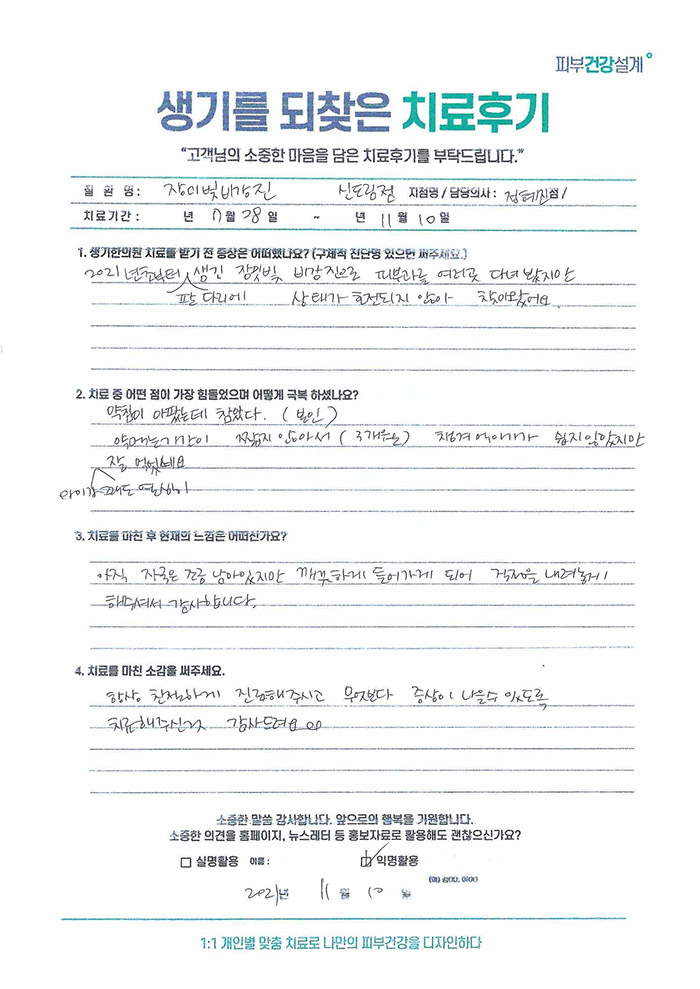 피부건강설계
생기를 되찾은 치료후기
"고객님의 소중한 마음을 담은 치료후기를 부탁드립니다."
질 환 명 : 장미빛비강진 신도림점 지점명 / 담당의사 : 점 /
치료기간 : 년 7월 28일 ~ 년 11월 10일
1. 생기한의원 치료를 받기 전 증상은 어떠했나요? (구체적 진단명 있으면 써주세요.)
2021년 생긴 장밋빛 비강진으로 피부과를 여러곳 다녀 봤지만
팔 다리에 상태가 호전되지 않아 찾아왔어요
2. 치료 중 어떤 점이 가장 힘들었으며 어떻게 극복 하셨나요?
약침이 아팠는데 참았다. (본인)
짧지 않아서 (3개월) 챙겨 먹이기가 쉽지않았지만
잘 먹었네요
아이가 열심히
3. 치료를 마친 후 현재의 느낌은 어떠신가요?
아직 자국은 조금 남아있지만 깨끗하게 들어가게 되어 걱정을 내려놓게
해주셔서 감사합니다.
4. 치료를 마친 소감을 써주세요.
항상 친절하게 진료해주시고 무엇보다 증상이 나을수 있도록
치료해주신것 감사드려요
소중한 말씀 감사합니다. 앞으로의 행복을 기원합니다.
소중한 의견을 홈페이지, 뉴스레터 등 홍보자료로 활용해도 괜찮으신가요?
□ 실명활용 이름 : ☑ 익명활용
2021년 11월 10일
1:1 개인별 맞춤 치료로 나만의 피부건강을 디자인하다